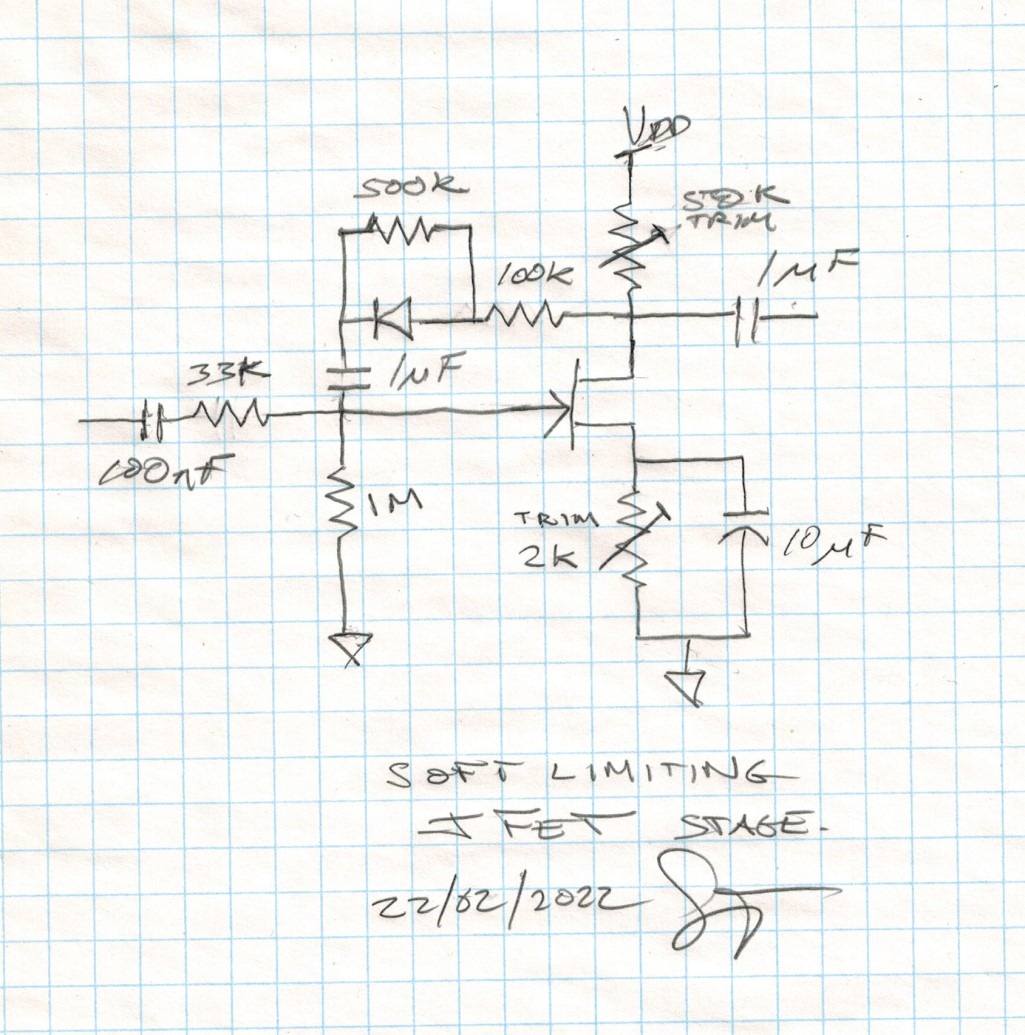 VDD
500K
50K
TRIM
100K
1µF
33K
1µF
100nF
1M
TRIM
2K
10µF
SOFT LIMITING
JFET STAGE.
22/02/2022